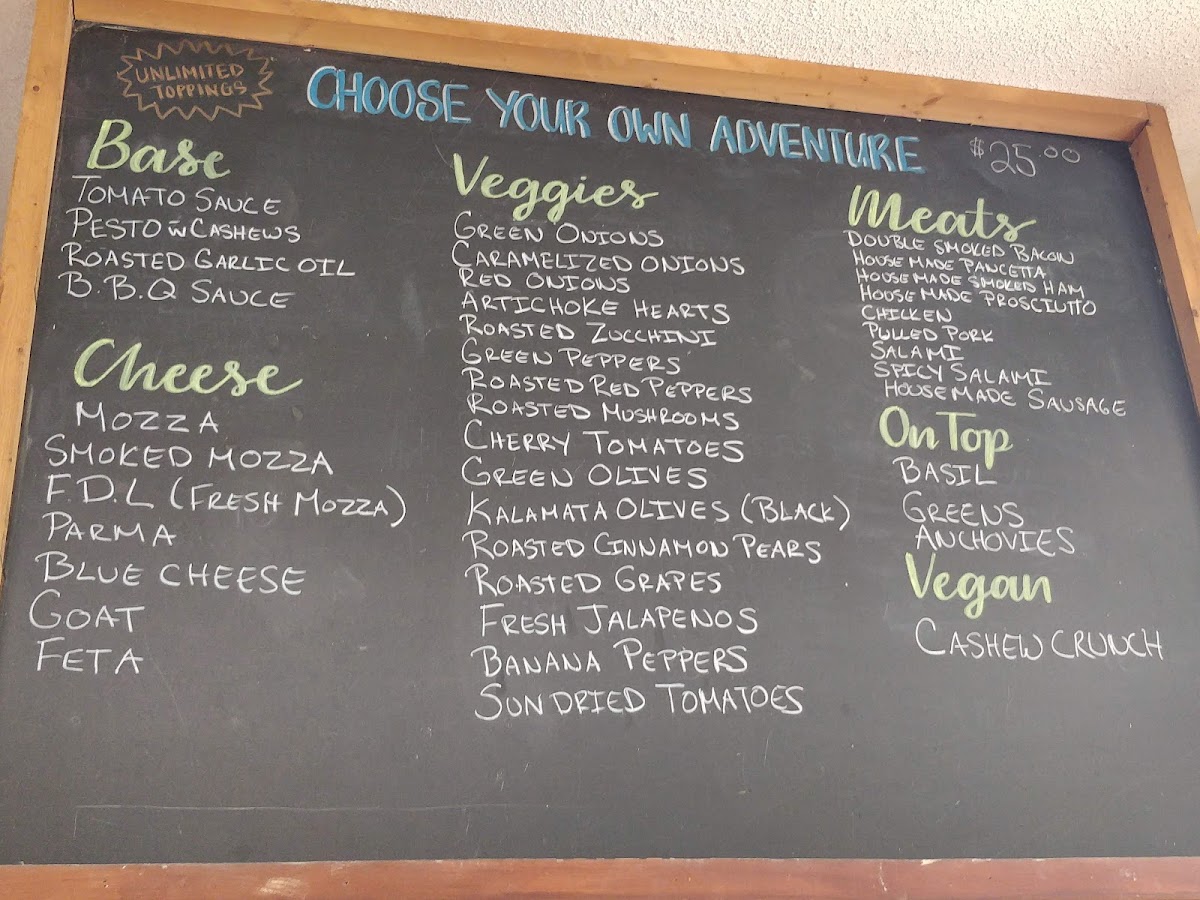 UNLIMITED
TOPPINGS
CHOOSE YOUR OWN ADVENTURE
$25.00
Base
TOMATO SAUCE
PESTO W CASHEWS
ROASTED GARLIC OIL
B.B.Q SAUCE
Cheese
MOZZA
SMOKED MOZZA
F.D.L (FRESH MOZZA)
PARMA
BLUE CHEESE
GOAT
FETA
Veggies
GREEN ONIONS
CARAMELIZED ONIONS
RED ONIONS
ARTICHOKE HEARTS
ROASTED ZUCCHINI
GREEN PEPPERS
ROASTED RED PEPPERS
ROASTED MUSHROOMS
CHERRY TOMATOES
GREEN OLIVES
KALAMATA OLIVES (BLACK)
ROASTED CINNAMON PEARS
ROASTED GRAPES
FRESH JALAPENOS
BANANA PEPPERS
SUNDRIED TOMATOES
Meats
DOUBLE SMOKED BACON
HOUSE MADE PANCETTA
HOUSE MADE SMOKED HAM
HOUSE MADE PROSCIUTTO
CHICKEN
PULLED PORK
SALAMI
SPICY SALAMI
HOUSEMADE SAUSAGE
On Top
BASIL
GREENS
ANCHOVIES
Vegan
CASHEW CRUNCH